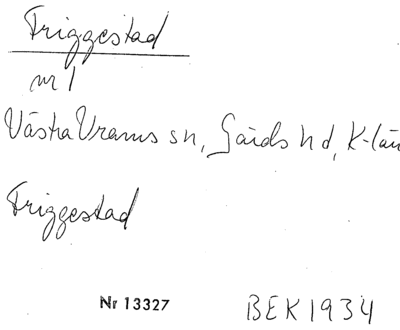 Friggestad
nr 1
Västra Vrams sn, Gärds hd, K-län
Friggestad
Nr 13327 BEK 1934